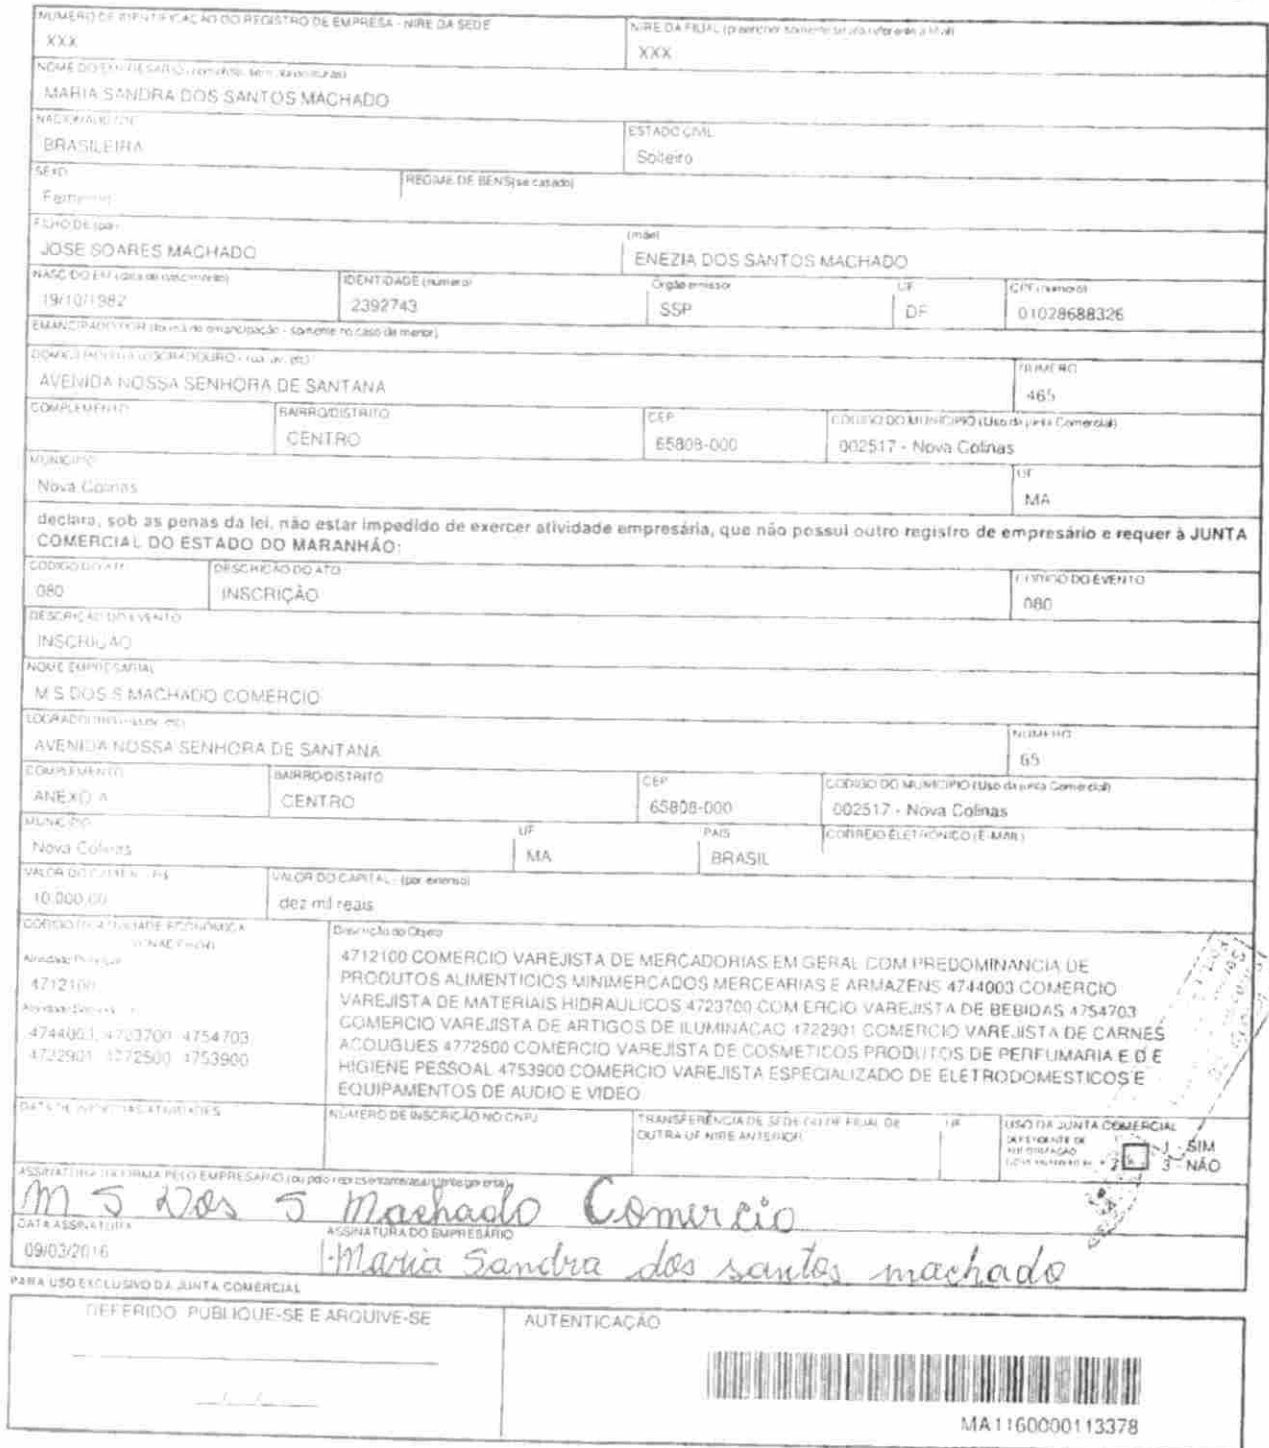 NÚMERO DE IDENTIFICAÇÃO DO REGISTRO DE EMPRESA - NIRE DA SEDE
NIRE DA FILIAL (preencher somente se ato referente a filial)
XXX
XXX
NOME DO EMPRESÁRIO (completo, sem abreviaturas)
MARIA SANDRA DOS SANTOS MACHADO
NACIONALIDADE
ESTADO CIVIL
BRASILEIRA
Solteiro
SEXO
REGIME DE BENS(se casado)
Feminino
FILHO DE (pai)
(mãe)
JOSE SOARES MACHADO
ENEZIA DOS SANTOS MACHADO
NASCIDO EM (data de nascimento)
IDENTIDADE (número)
Órgão emissor
UF
CPF (número)
19/10/1982
2392743
SSP
DF
01028688326
EMANCIPADO POR (forma de emancipação - somente no caso de menor)
DOMICILIADO NA (LOGRADOURO - rua, av, etc)
NÚMERO
AVENIDA NOSSA SENHORA DE SANTANA
465
COMPLEMENTO
BAIRRO/DISTRITO
CEP
CÓDIGO DO MUNICÍPIO (Uso da junta Comercial)
CENTRO
65808-000
002517 - Nova Colinas
MUNICÍPIO
UF
Nova Colinas
MA
declara, sob as penas da lei, não estar impedido de exercer atividade empresária, que não possui outro registro de empresário e requer à JUNTA
COMERCIAL DO ESTADO DO MARANHÃO:
CÓDIGO DO ATO
DESCRIÇÃO DO ATO
CÓDIGO DO EVENTO
080
INSCRIÇÃO
080
DESCRIÇÃO DO EVENTO
INSCRIÇÃO
NOME EMPRESARIAL
M S DOS S MACHADO COMERCIO
LOGRADOURO (rua, av, etc)
NÚMERO
AVENIDA NOSSA SENHORA DE SANTANA
65
COMPLEMENTO
BAIRRO/DISTRITO
CEP
CÓDIGO DO MUNICÍPIO (Uso da junta Comercial)
ANEXO A
CENTRO
65808-000
002517 - Nova Colinas
MUNICÍPIO
UF
PAÍS
CORREIO ELETRÔNICO (E-MAIL)
Nova Colinas
MA
BRASIL
VALOR DO CAPITAL - R$
VALOR DO CAPITAL - (por extenso)
10.000,00
dez mil reais
CÓDIGO DE ATIVIDADE ECONÔMICA
(CNAE Fiscal)
Descrição do Objeto
Atividade Principal
4712100
Atividade Secundária
4744003 4723700 4754703
4722901 4772500 4753900
4712100 COMERCIO VAREJISTA DE MERCADORIAS EM GERAL COM PREDOMINANCIA DE
PRODUTOS ALIMENTICIOS MINIMERCADOS MERCEARIAS E ARMAZENS 4744003 COMERCIO
VAREJISTA DE MATERIAIS HIDRAULICOS 4723700 COM ERCIO VAREJISTA DE BEBIDAS 4754703
COMERCIO VAREJISTA DE ARTIGOS DE ILUMINACAO 4722901 COMERCIO VAREJISTA DE CARNES
ACOUGUES 4772500 COMERCIO VAREJISTA DE COSMETICOS PRODUTOS DE PERFUMARIA E D E
HIGIENE PESSOAL 4753900 COMERCIO VAREJISTA ESPECIALIZADO DE ELETRODOMESTICOS E
EQUIPAMENTOS DE AUDIO E VIDEO
DATA DE INÍCIO DAS ATIVIDADES
NÚMERO DE INSCRIÇÃO NO CNPJ
TRANSFERÊNCIA DE SEDE OU DE FILIAL DE
OUTRA UF NIRE ANTERIOR
UF
USO DA JUNTA COMERCIAL
DEPENDENTE DE
AUTORIZAÇÃO
1 - SIM
3 - NÃO
ASSINATURA DA FIRMA PELO EMPRESÁRIO (ou pelo representante/assistente/gerente)
M S Dos S Machado Comercio
DATA ASSINATURA
ASSINATURA DO EMPRESÁRIO
09/03/2016
Maria Sandra dos santos machado
PARA USO EXCLUSIVO DA JUNTA COMERCIAL
DEFERIDO PUBLIQUE-SE E ARQUIVE-SE
AUTENTICAÇÃO
MA1160000113378